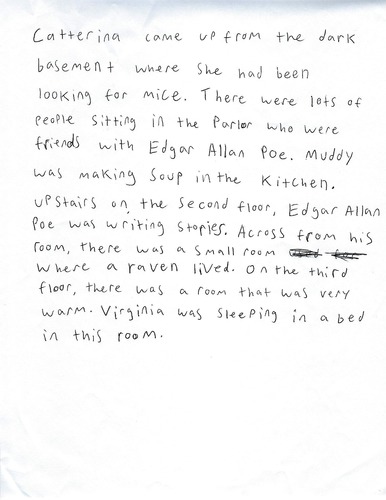 Catterina came up from the dark
basement where she had been
looking for mice. There were lots of
people sitting in the Parlor who were
friends with Edgar Allan Poe. Muddy
was making soup in the kitchen.
upstairs on the second floor, Edgar Allan
Poe was writing stories. Across from his
room, there was a small room
where a raven lived. On the third
floor, there was a room that was very
warm. Virginia was sleeping in a bed
in this room.